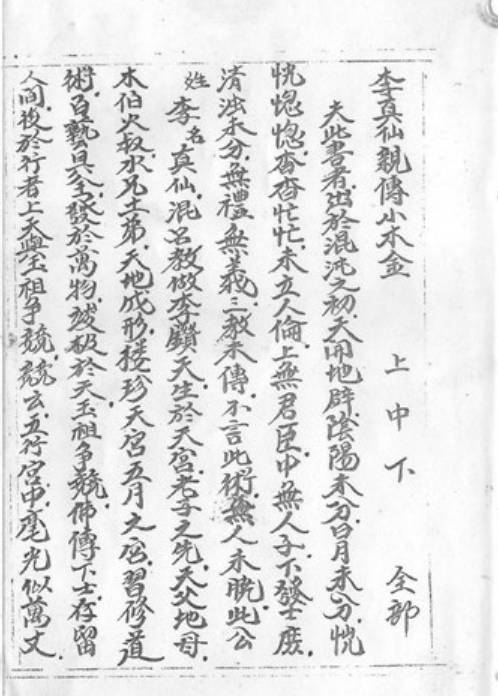 李真仙親傳小木金　上中下　全部
夫此書者出於混沌之初天開地辟陰陽未分日月未分恍
恍惚惚杳杳忙忙未立人倫上無君臣中無人子下發士庶
清濁未分無禮無義三教未傳不言此術無人未曉此公
姓李名真仙混名教做李鑽天生於天宮老子之先天父地母
木伯火叔水兄土弟天地成形接珍天宮五月之宮習修道
術百藝具全發於萬物破敗於天玉祖爭競佛傳下士存留
人間後於行者上天與玉祖爭競競玄五行宮中毫光似萬丈